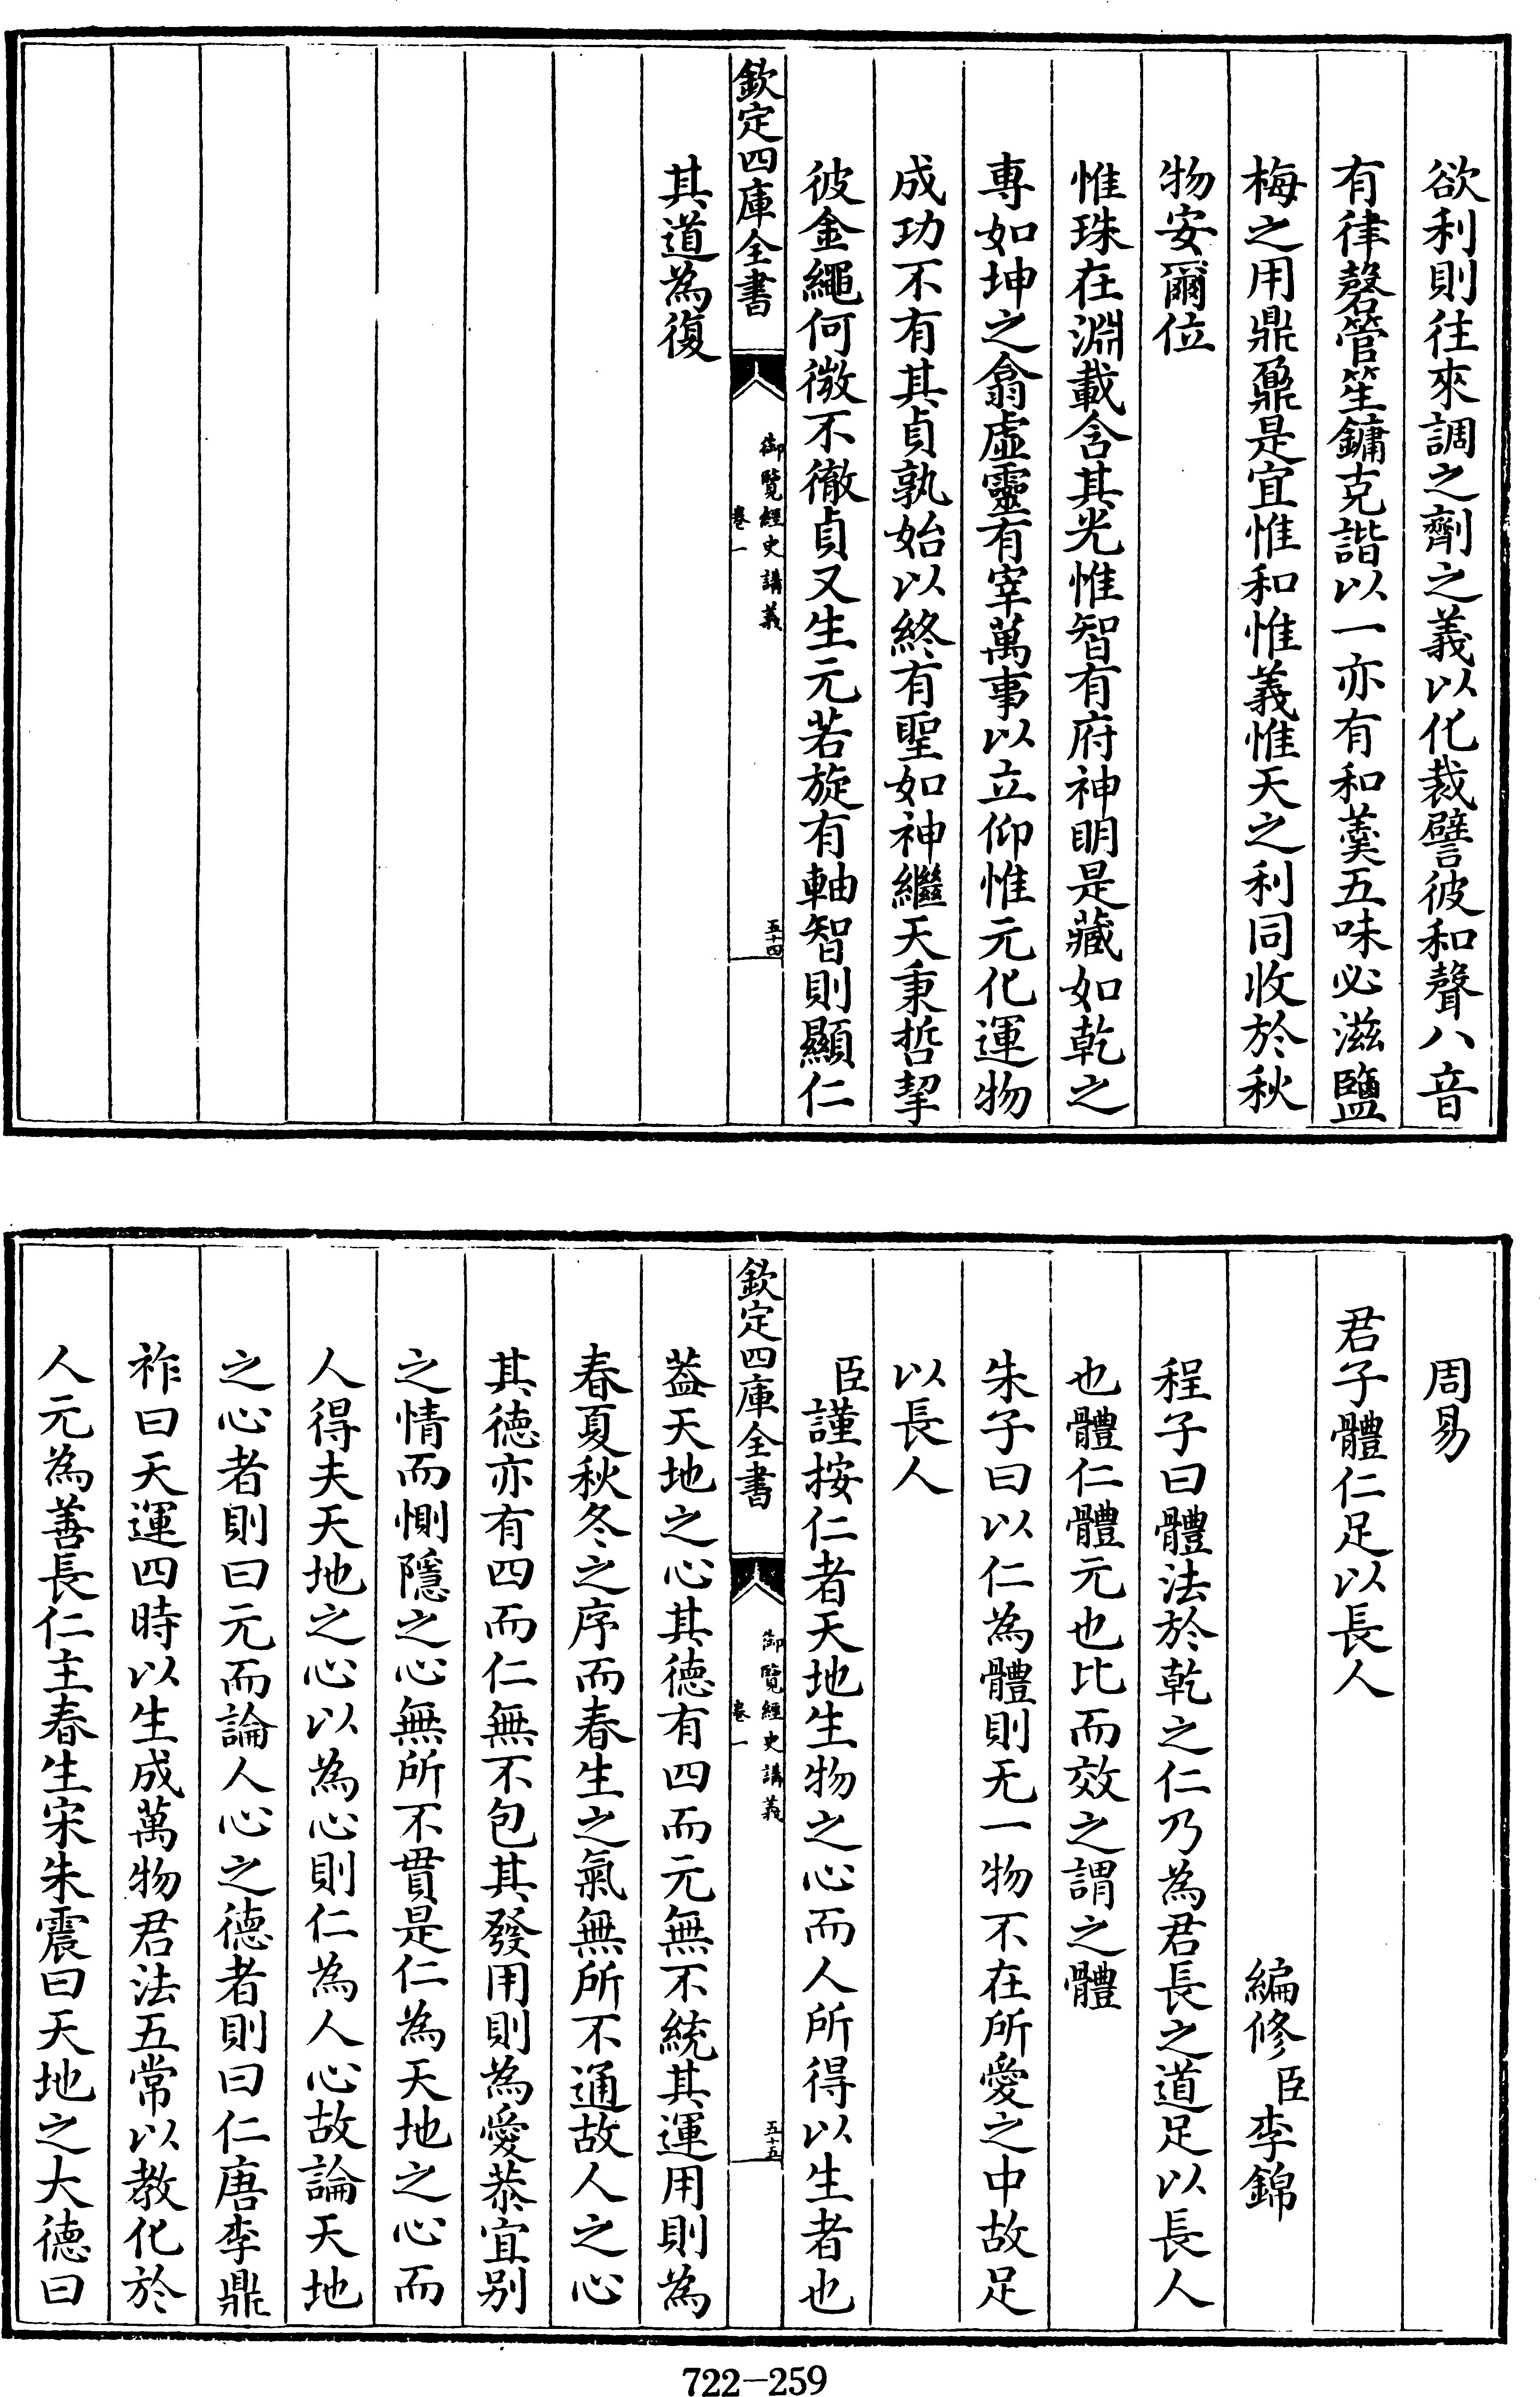 欲利則往來調之劑之義以化裁譬彼和聲八音
有律磬管笙鏞克諧以一亦有和羹五味必滋鹽
梅之用鼎鼐是宜惟和惟義惟天之利同收於秋
物安爾位
惟珠在淵載含其光惟智有府神明是藏如乾之
專如坤之翕虛靈有宰萬事以立仰惟元化運物
成功不有其貞孰始以終有聖如神繼天秉哲挈
彼金繩何微不徹貞又生元若旋有軸智則顯仁
欽定四庫全書
御覽經史講義
卷一
五十四
其道為復
周易
君子體仁足以長人
編修臣李錦
程子曰體法於乾之仁乃為君長之道足以長人
也體仁體元也比而效之謂之體
朱子曰以仁為體則无一物不在所愛之中故足
以長人
臣謹按仁者天地生物之心而人所得以生者也
欽定四庫全書
御覽經史講義
卷一
五十五
葢天地之心其德有四而元無不統其運用則為
春夏秋冬之序而春生之氣無所不通故人之心
其德亦有四而仁無不包其發用則為愛恭宜别
之情而惻隱之心無所不貫是仁為天地之心而
人得夫天地之心以為心則仁為人心故論天地
之心者則曰元而論人心之德者則曰仁唐李鼎
祚曰天運四時以生成萬物君法五常以教化於
人元為善長仁主春生宋朱震曰天地之大德曰
722-259